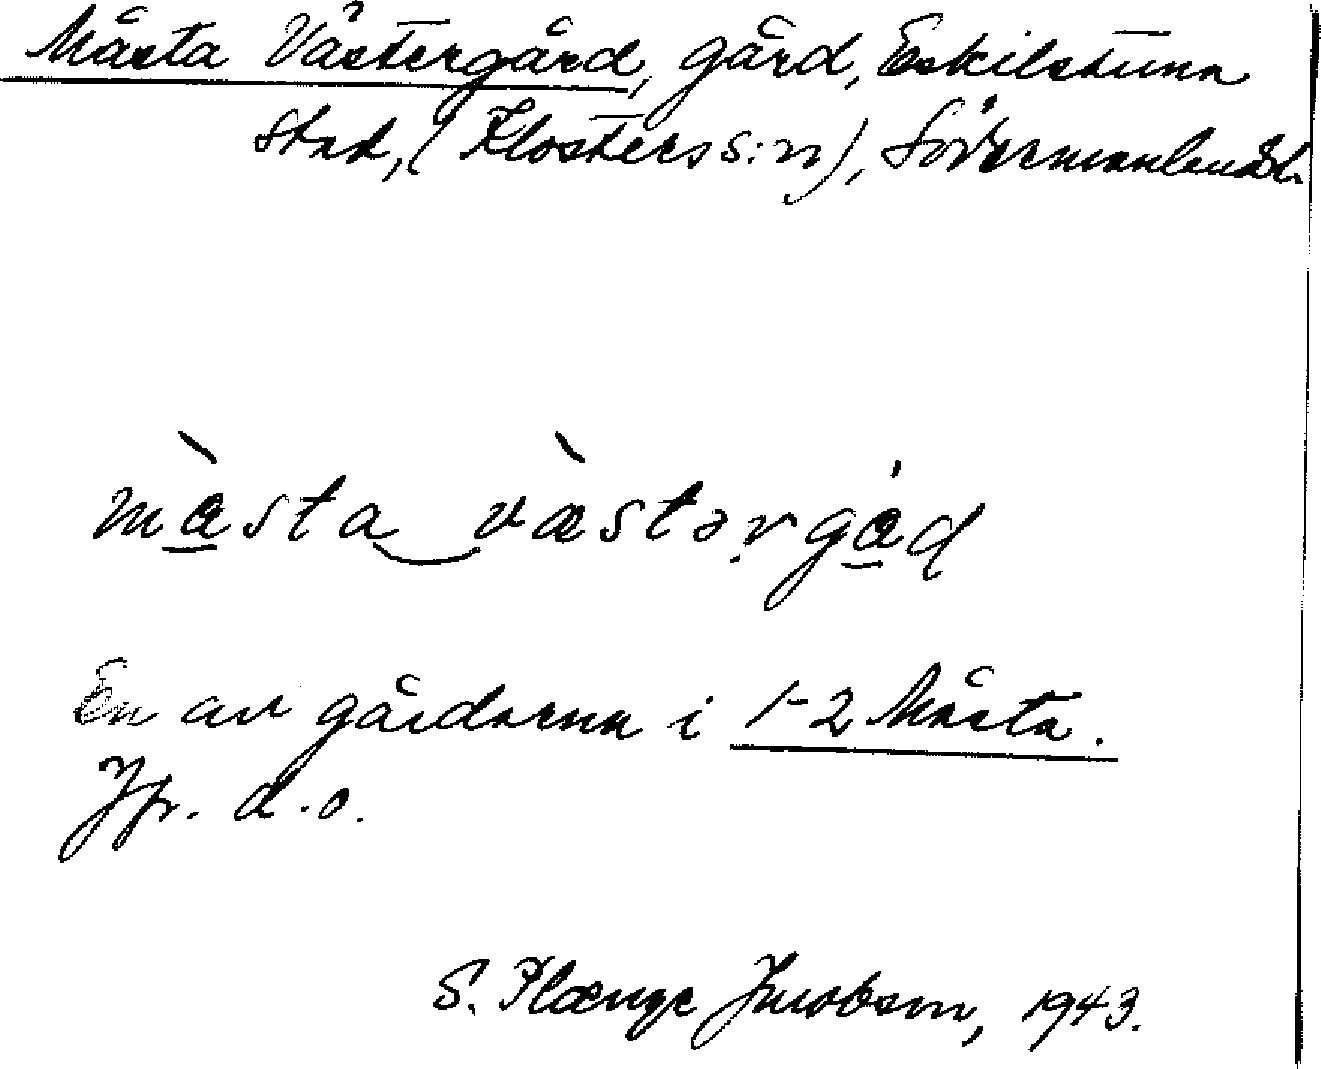 Måsta Västergård, gård, Eskilstuna
stad, (Klosters s:n), Södermanlands l.
mɑ̀sta‿væ̀stərgɑ́d
En av gårdarna i 1-2 Måsta.
Jfr. d.o.
S. Plænge Jacobson, 1943.